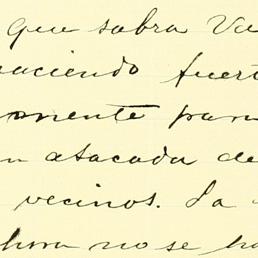 que sabra Vu
haciendo fuert
mente para
n atacada de
vecinos. La
hora no se ha